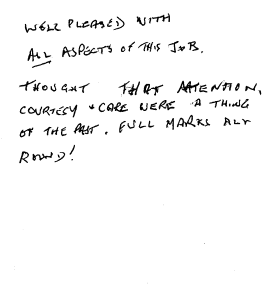 WELL PLEASED WITH
ALL ASPECTS OF THIS JOB.
THOUGHT THAT ATTENTION,
COURTESY + CARE WERE A THING
OF THE PAST. FULL MARKS ALL
ROUND!